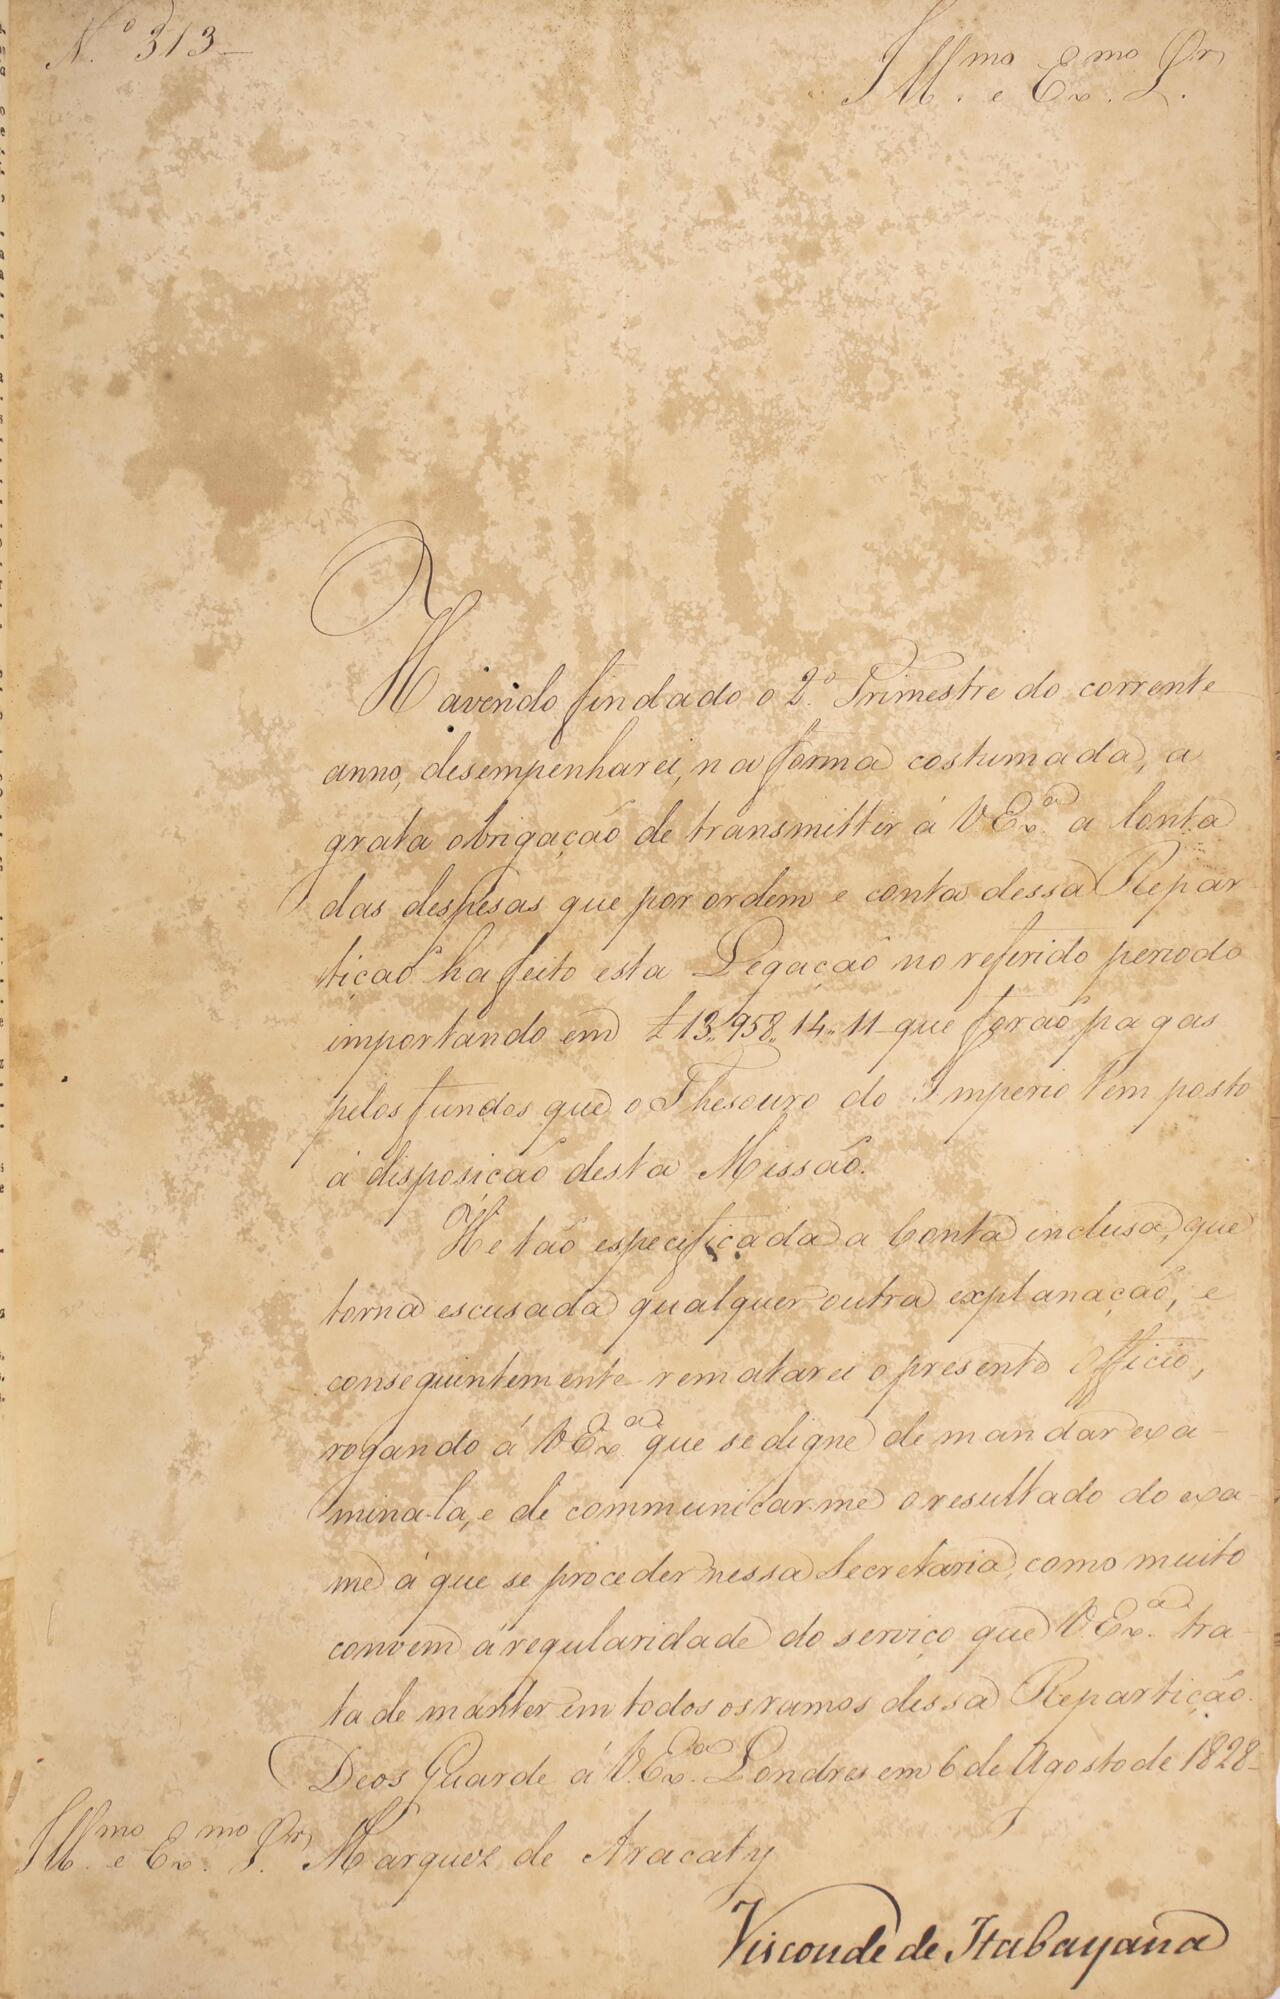 N.º 313
Ill.mo e Ex.mo Sr.
Havendo findado o 2.º Trimestre do corrente
anno, desempenharei, na forma costumada, a
grata obrigação de transmittir á V Ex.a a Conta
das despesas que por ordem e conta dessa Repar
tição ha feito esta Legação no referido periodo
importando em £ 13,,958,,14,,11 que forão pagas
pelos fundos que o Thesouro do Imperio tem posto
á disposição desta Missão.
He tão especificada a Conta inclusa, que
torna escusada qualquer outra explanação, e
conseguintemente rematarei o presente Officio,
rogando á V Ex.a que se digne de mandar exa-
mina-la, e de communicar-me o resultado do exa-
me á que se proceder nessa Secretaria, como muito
convem á regularidade do serviço que V.Ex.a tra-
ta de manter em todos os ramos dessa Repartição.
Deos Guarde á V.Ex.a Londres em 6 de Agosto de 1828-
Ill.mo e Ex.mo Sr. Marquez de Aracaty
Visconde de Itabayana